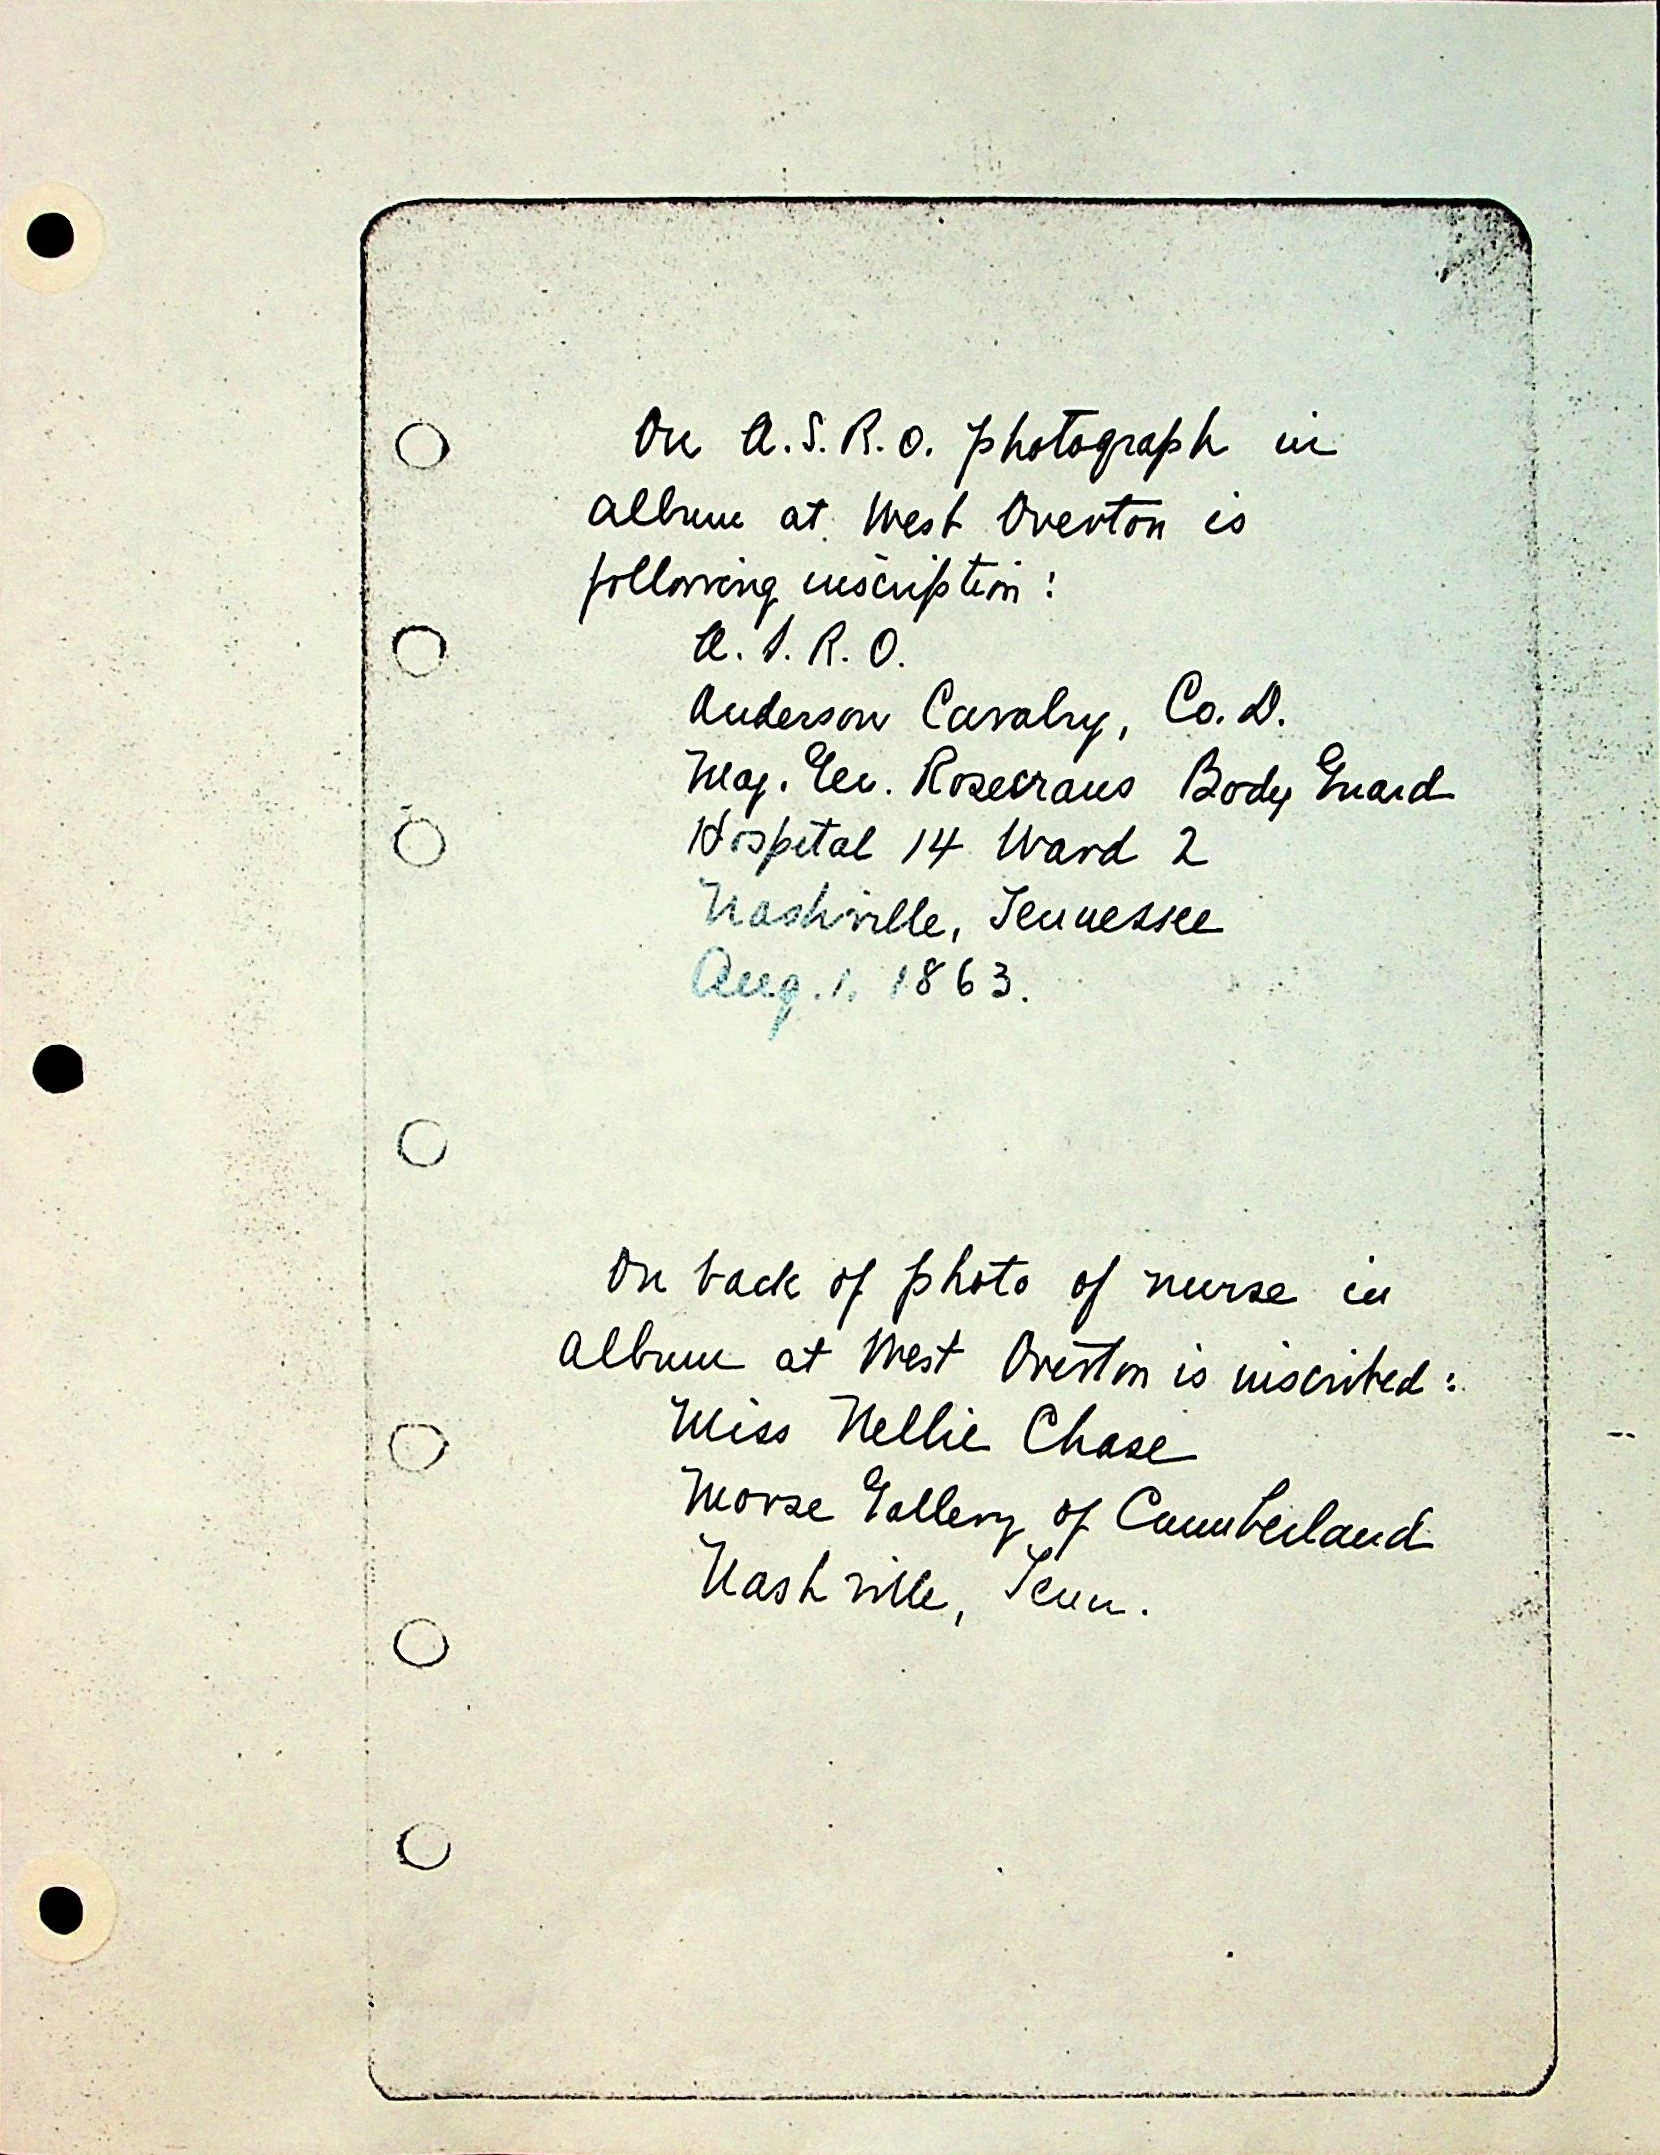 On A.S.R.O. photograph in
album at West Overton is
following inscription:
A.S.R.O.
Anderson Cavalry, Co. D.
Maj. Gen. Rosecrans Body Guard
Hospital 14 Ward 2
Nashville, Tennessee
Aug. 1, 1863.
On back of photo of nurse in
album at West Overton is inscribed:
Miss Nellie Chase
Morse Gallery of Cumberland
Nashville, Tenn.